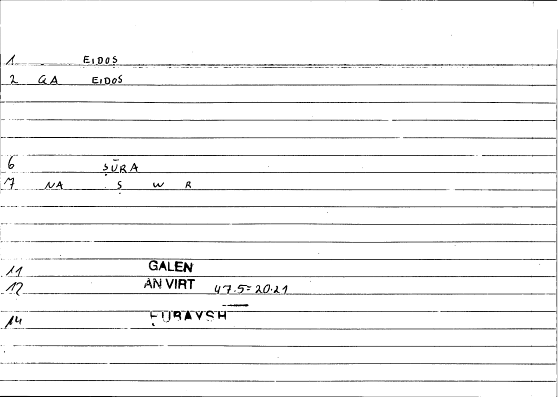 1 EIDOS
2 GA EIDOS
6 ṢŪRA
7 NA Ṣ W R
11 GALEN
12 AN VIRT 47.5=20.21
14 ḤUBAYSH